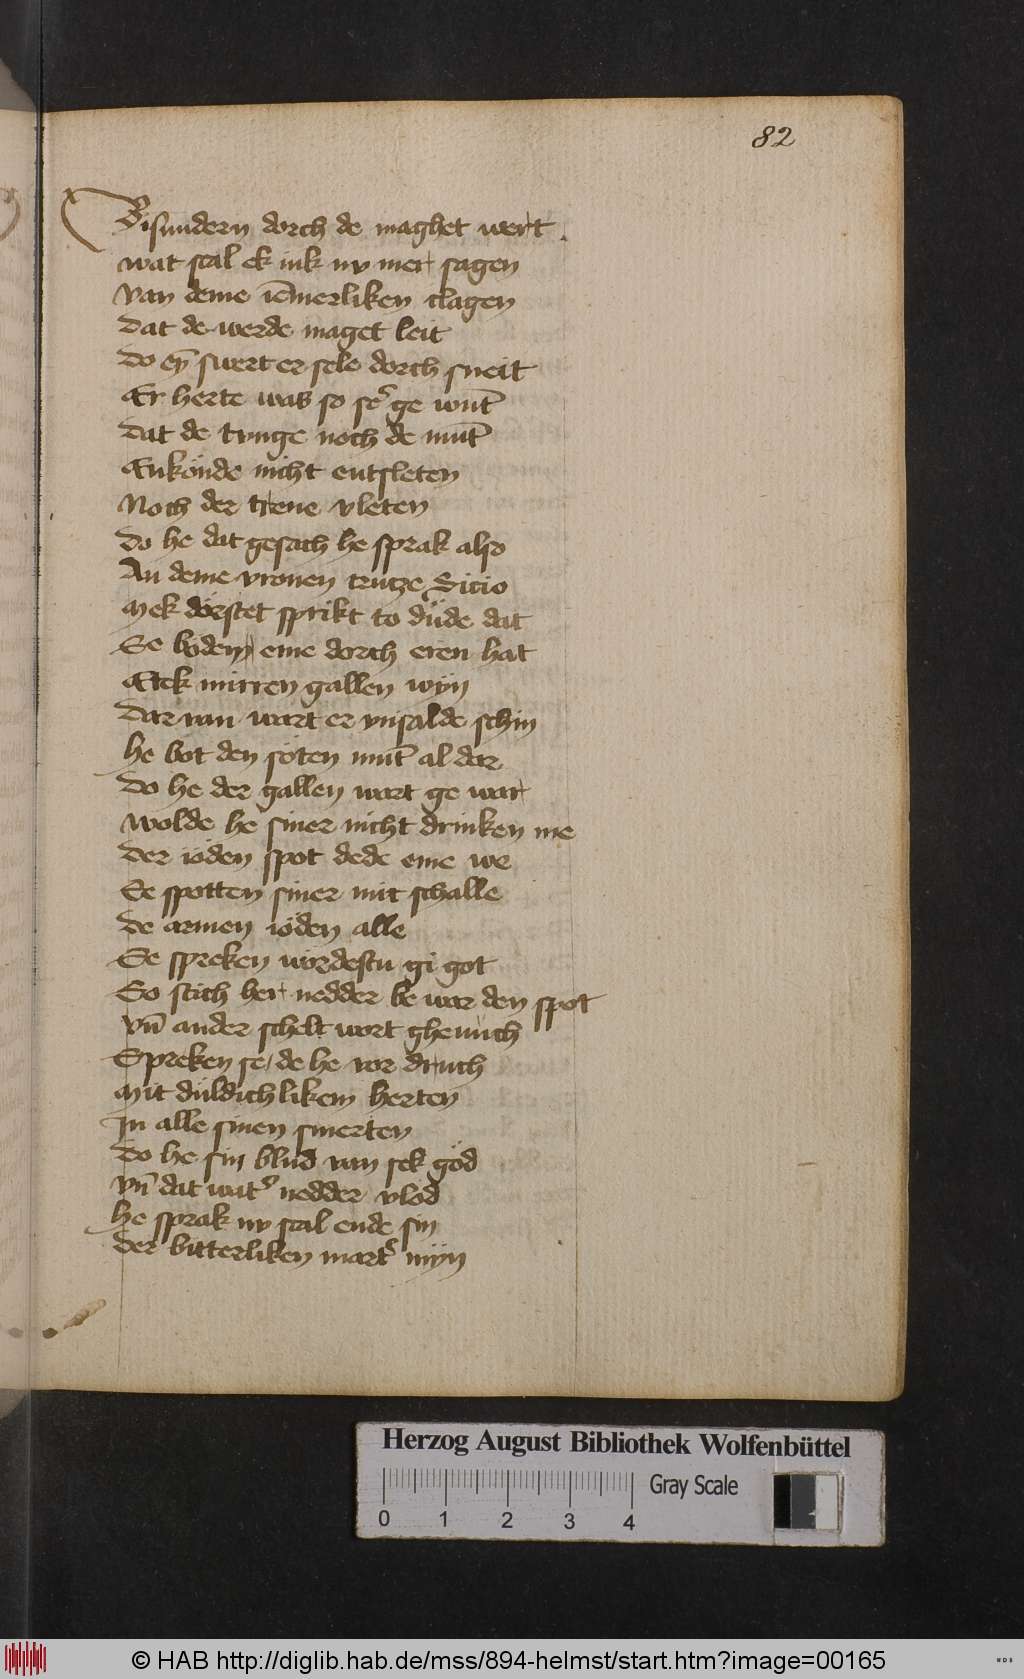 82
Bisundern dorch de maghet wert
wat scal ek iuk nv mer sagen
van deme iēmerliken clagen
dat de werde maget leit
do eȳ swert er sele dorch sneit
Er herte was so sẽ ge wūt
dat de tvnge noch de mūt
Enkönde nicht entsleten
Noch der trene vleten
do he dat gesach he sprak also
An deme vronen crutze Sicio
Mek dörstet sprikt to düde dat
Se boden eme dorch eren hat
Etek mirren gallen wÿn
dar van wart er vnsalde schin
he bot den söten mūt al dar
do he der gallen wart ge war
wolde he siner nicht drinken me
der iöden spot dede eme we
Se spotten siner mit schalle
de armen iöden alle
Se spreken wördestu gi got
So stich her nedder be war den spot
vn̄ ander schelt wort ghenuch
Spreken se de he vor druch
Mit düldichlikem herten
In alle sinen smerten
do he sin blud van sek göd
vn̄ dat wat᷒ nedder vlod
he sprak nv scal ende sin
der bitterliken mart᷒ mÿn
Herzog August Bibliothek Wolfenbüttel
Gray Scale
0 1 2 3 4
© HAB http://diglib.hab.de/mss/894-helmst/start.htm?image=00165